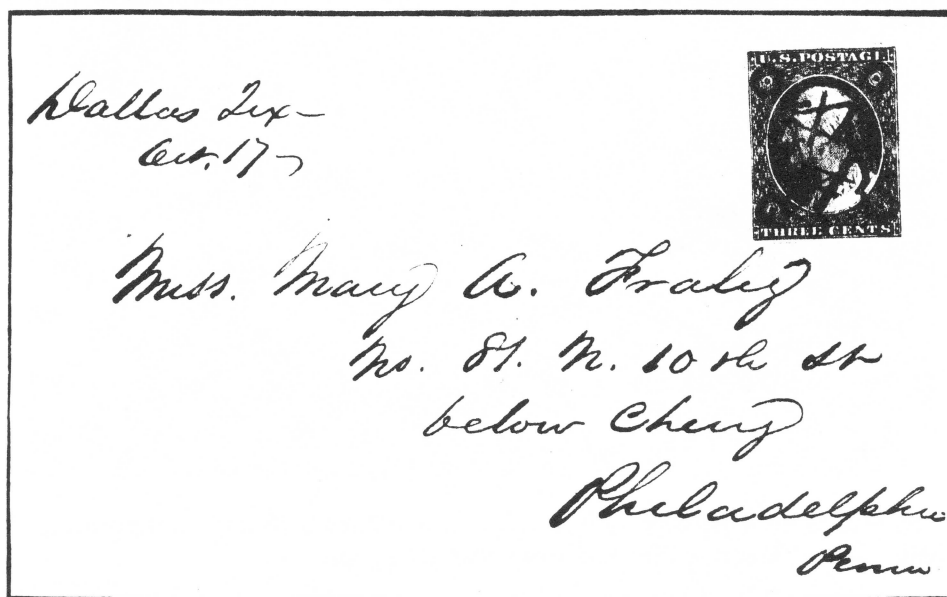 Dallas Tex–
Oct. 17–
U.S. POSTAGE
THREE CENTS
Miss. Mary A. Fraley
No. 81. N. 10 th St
below Cherry
Philadelphia
Penna